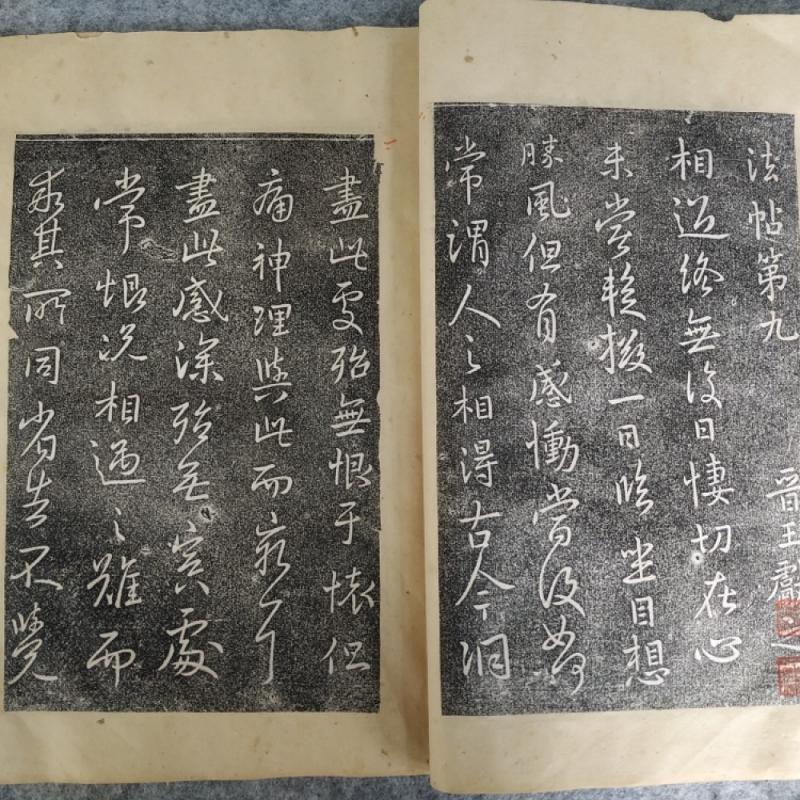 法帖第九
晉王獻之
相過終無復日悽切在心
未嘗撥一日臨坐目想
勝風但有感慟當復如何
常謂人之相得古今洞
盡此處殆無恨于懷但
痛神理與此而窮耳
盡此感深殆無冥處
常恨況相遇之難而
乖其所同省告不覺